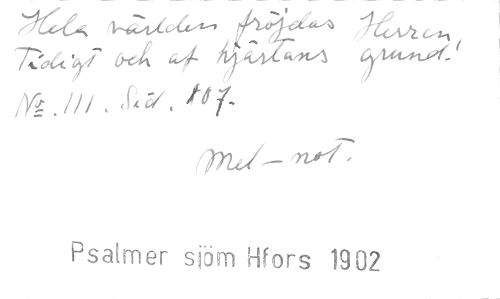 Hela världen fröjdas Herren,
Tidigt och af hjärtans grund!
No. 111. Sid. 107.
Mel-not.
Psalmer sjöm Hfors 1902